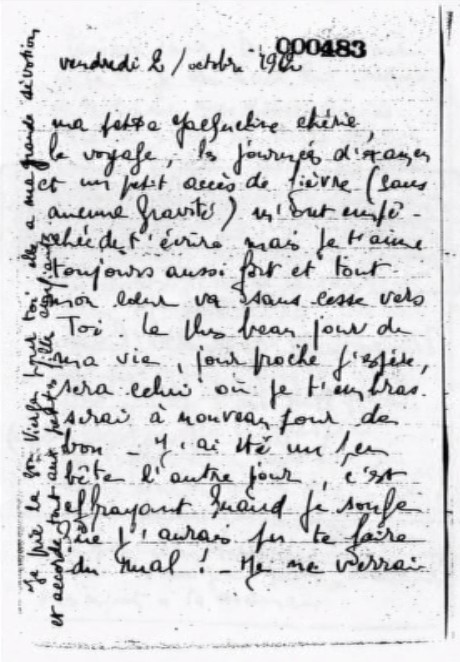 000483
vendredi 2 / octobre
ma petite Jacqueline chérie,
le voyage, les journées d'examen
et un petit accès de fièvre (sans
aucune gravité) m'ont empê-
chée de t'écrire mais je t'aime
toujours aussi fort et tout
mon cœur va sans cesse vers
Toi. Le plus beau jour de
ma vie, jour proche j'espère,
sera celui où je t'embras-
serai à nouveau pour de
bon - J'ai été un peu
bête l'autre jour, c'est
effrayant quand je songe
que j'aurais pu te faire
du mal ! - Je ne verrai
Je prie la bonne Vierge pour toi elle a ma grande dévotion
et accorde tout aux petites filles confiantes